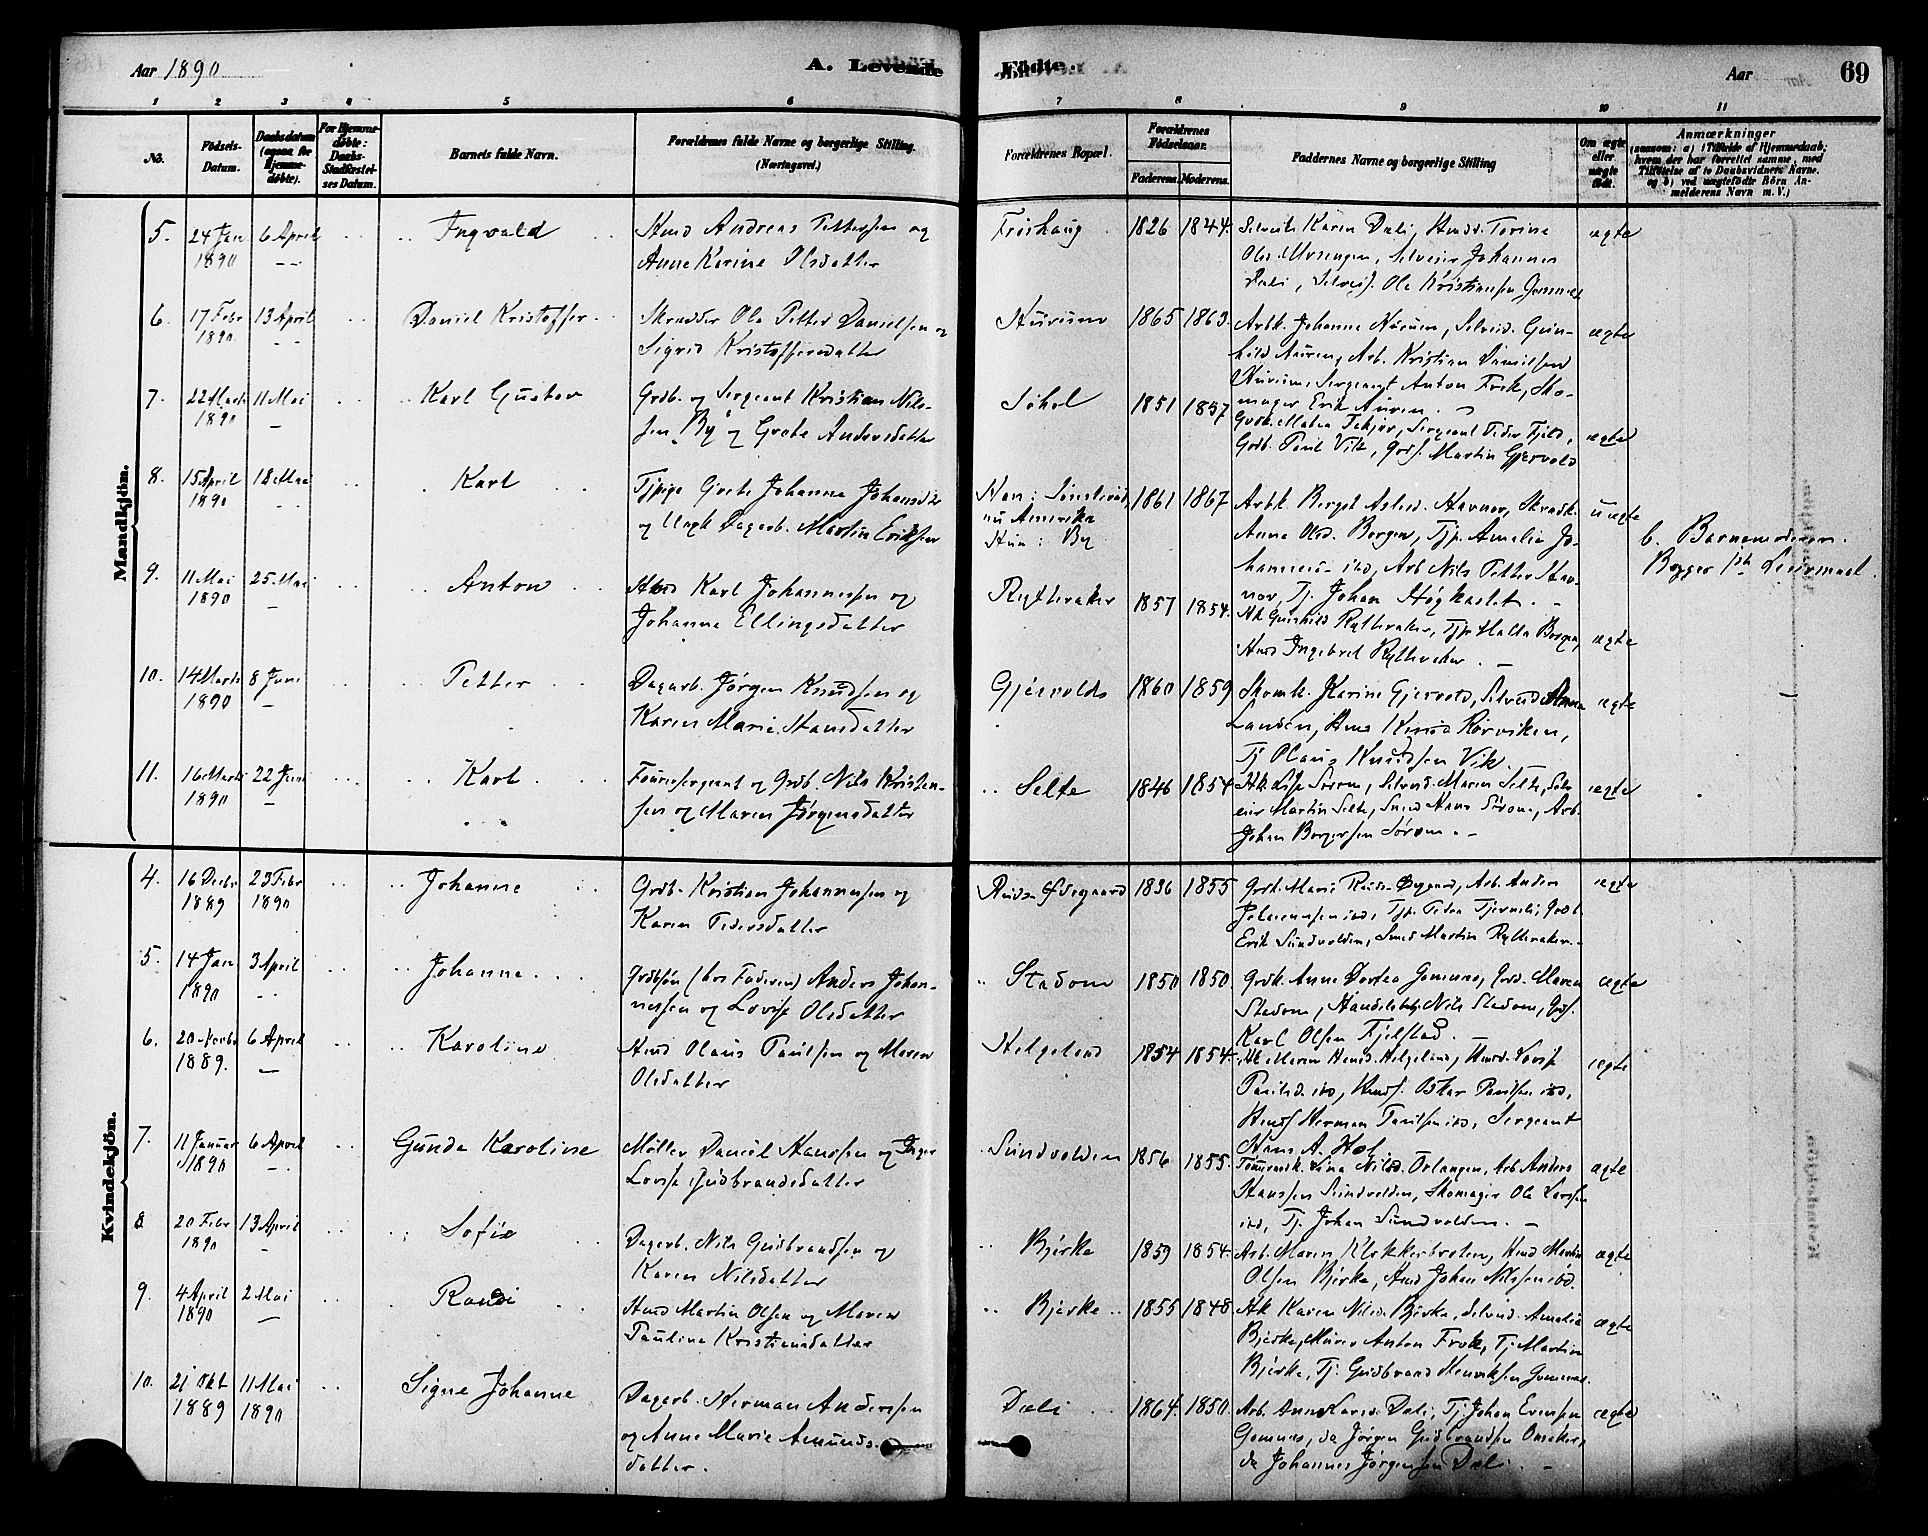 Aar 1890
A. Levende
Fødte.
Aar
69
1 2 3 4 5 6 7 8 9 10 11
No.
Fødsels-
Datum.
Daabsdatum
(ogsaa for
Hjemme-
døbte).
For Hjemme-
døbte:
Daabs-
Stadfæstel-
ses Datum.
Barnets fulde Navn.
Forældrenes fulde Navne og borgerlige Stilling.
(Næringsvei.)
Forældrenes Bopæl.
Forældrenes
Fødselsaar.
Faderens. Moderens.
Faddernes Navne og borgerlige Stilling
Om ægte
eller
uægte
født.
Anmærkninger
(saasom: a) i Tilfælde af Hjemmedaab,
hvem der har forrettet samme, med
Tilføielse af to Daabsvidners Navne.
og b) ved uægtefødte Børn An-
melderens Navn m. V.)
Mandkjön.
5. 24 Jan 1890 6 April Ingvald
Husd Andreas Pettersen og
Anne Karine Olsdatter
Frøshaug 1826 1844.
Selveisk Karen Dæli, Husd. Torine
Olsd Mosengen, Selveier Johannes
Dæli, Selveisf. Ole Kristiansen Gomnes
ægte
6. 17 Febr 1890 13 April Daniel Kristoffer
Skrædder Ole Petter Danielsen og
Sigrid Kristoffersdatter
Hurum 1865 1863.
Arbk. Johanne Hurum, Selveid. Gun-
hild Auren, Arb. Kristian Danielsen
Hurum, Sergeant Anton Frok, Sko-
mager Erik Auren.
ægte
7. 22 Marts 1890 11 Mai Karl Gustav
Grdb. og Sergeant Kristian Nils-
sen By og Grete Andersdatter
Søhol 1851 1857
Sergeant Peder Fjeld,
Grdb. Paul Vik, Grds. Martin Gjervold
ægte
8. 15 April 1890 18 Mai Karl
Tjpige Grete Johanna Johansdtr
og Ungk Dagarb. Martin Eriksen
Han: Sønsterud,
nu Amerika
Hun: By
1861 1867
Arbk. Berget Aslesd. Havnor, Skrædk.
Anne Olsd. Borgen, Tjp. Amelia Jo-
hannesd ibd, Arb Nils Petter Hav-
nor, Tj. Johan Høghaslet.
uægte
b. Barnemoderen.
9. 11 Mai 1890 25 Mai Anton
Husd Karl Johannessen og
Johanne Ellingsdatter
Rytteraker 1857 1854.
Hk Gunhild Rytteraker, Tjp
Husd Ingebret Rytteraker.
ægte
10. 14 Marts 1890 8 Juni Petter
Dagarb. Jørgen Knudsen og
Karen Marie Hansdatter
Gjervolds 1860 1859
Skomk. Karine Gjervold, Selveid Anna
Husd Knud Rørviken,
Tj Olaus Knudsen Vik.
ægte
11. 16 Marts 1890 22 Juni Karl
Fourersergeant og Grdb. Nils Kristen-
sen og Maren Jørgensdatter
Selte 1846 1854
Hk. Lise Sørum, Selveid. Maren Selte, Selv-
eier Martin Selte, Smed Hans Sørum, Arb.
Johan Borgersen Sørum.
ægte
Kvindekjön.
4. 16 Decbr 1889 23 Febr 1890 Johanne
Grdb. Kristian Johannessen og
Karen Pedersdatter
Ødegaard 1836 1855
Arb. Anders
Johannessen ibd,
Erik Sundvolden, Smed Martin Rytteraker.
ægte
5. 14 Jan 1890 3 April Johanne
Grdbsøn (hos Faderen) Anders Johan-
nessen og Lovise Olsdatter
Stadum 1850 1850
Grdk. Anne Dortea Gomnes, Grd. Maren
Stadum, Nils Stadum, Grds.
Karl Olsen Fjelstad.
ægte
6. 20 Novbr 1889. 6 April Karoline
Husd Olaus Paulsen og Maren
Olsdatter
Helgeland 1854 1854.
Hk Maren Husd. Helgeland, Husd. Lovise
Paulsd. ibd, Husds. Oskar Paulsen ibd,
Husds Herman Paulsen ibd, Sergeant
Hans A. Hol
ægte
7. 11 Januar 1890 6 April Gunda Karoline
Møller Daniel Hanssen og Inger
Lovise Gudbrandsdatter
Sundvolden 1856 1855.
Lina Nilsd. Orlangen, Arb Anders
Hanssen Sundvolden, Skomager Ole Larsen
ibd, Tj. Johan Sundvolden.
ægte
8 20 Febr 1890 13 April Sofie
Dagarb. Nils Gudbrandsen og
Karen Nilsdatter
Bjerke 1859 1854.
Arb. Maren Klokkerbraten, Husd Martin
Olsen Bjerke, Husd Johan Nilssen ibd.
ægte
9. 4 April 1890 2 Mai Randi
Husd Martin Olsen og Maren
Pauline Kristiansdatter
Bjerke 1855 1848
Hk Karen Nilsd. Bjerke, Selveid. Amalie
Bjerke, Murer Anton Frok, Tj. Martin
Bjerke, Tj. Gudbrand Henriksen Gomnes.
ægte
10. 21 Okt 1889 11 Mai 1890 Signe Johanne
Dagarb. Herman Andersen
og Anne Marie Amunds-
datter.
Dæli 1864. 1850.
Arb. Anne Larsd. Dæli, Tj. Johan Evensen
Gomnes, do Jørgen Gudbrandsen Onsaker,
do Johannes Jørgensen Dæli.
ægte